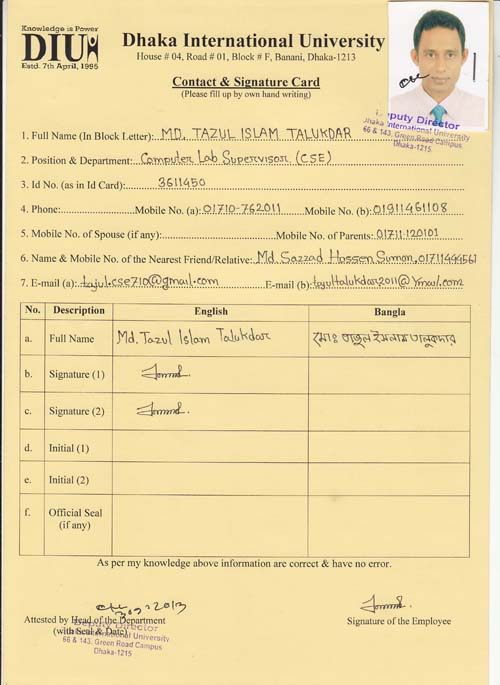 Knowledge is Power
DIU
Estd. 7th April, 1995
Dhaka International University
House # 04, Road # 01, Block # F, Banani, Dhaka-1213
Contact & Signature Card
(Please fill up by own hand writing)
Deputy Director
Dhaka International University
66 & 143, Green Road Campus
Dhaka-1215
1. Full Name (In Block Letter): MD. TAZUL ISLAM TALUKDAR
2. Position & Department: Computer Lab Supervisor (CSE)
3. Id No. (as in Id Card): 3611450
4. Phone: Mobile No. (a): 01710-762011 Mobile No. (b): 01911461108
5. Mobile No. of Spouse (if any): Mobile No. of Parents: 01711-120101
6. Name & Mobile No. of the Nearest Friend/Relative: Md. Sazzad Hossen Suman, 01711444561
7. E-mail (a): tajul.cse710@gmail.com E-mail (b): tajultalukdar2011@ymail.com
No. Description English Bangla
a. Full Name Md. Tazul Islam Talukdar মোঃ তাজুল ইসলাম তালুকদার
b. Signature (1)
c. Signature (2)
d. Initial (1)
e. Initial (2)
f. Official Seal
(if any)
As per my knowledge above information are correct & have no error.
Attested by Head of the Department
(with Seal & Date)
Signature of the Employee
Deputy Director
Dhaka International University
66 & 143, Green Road Campus
Dhaka-1215